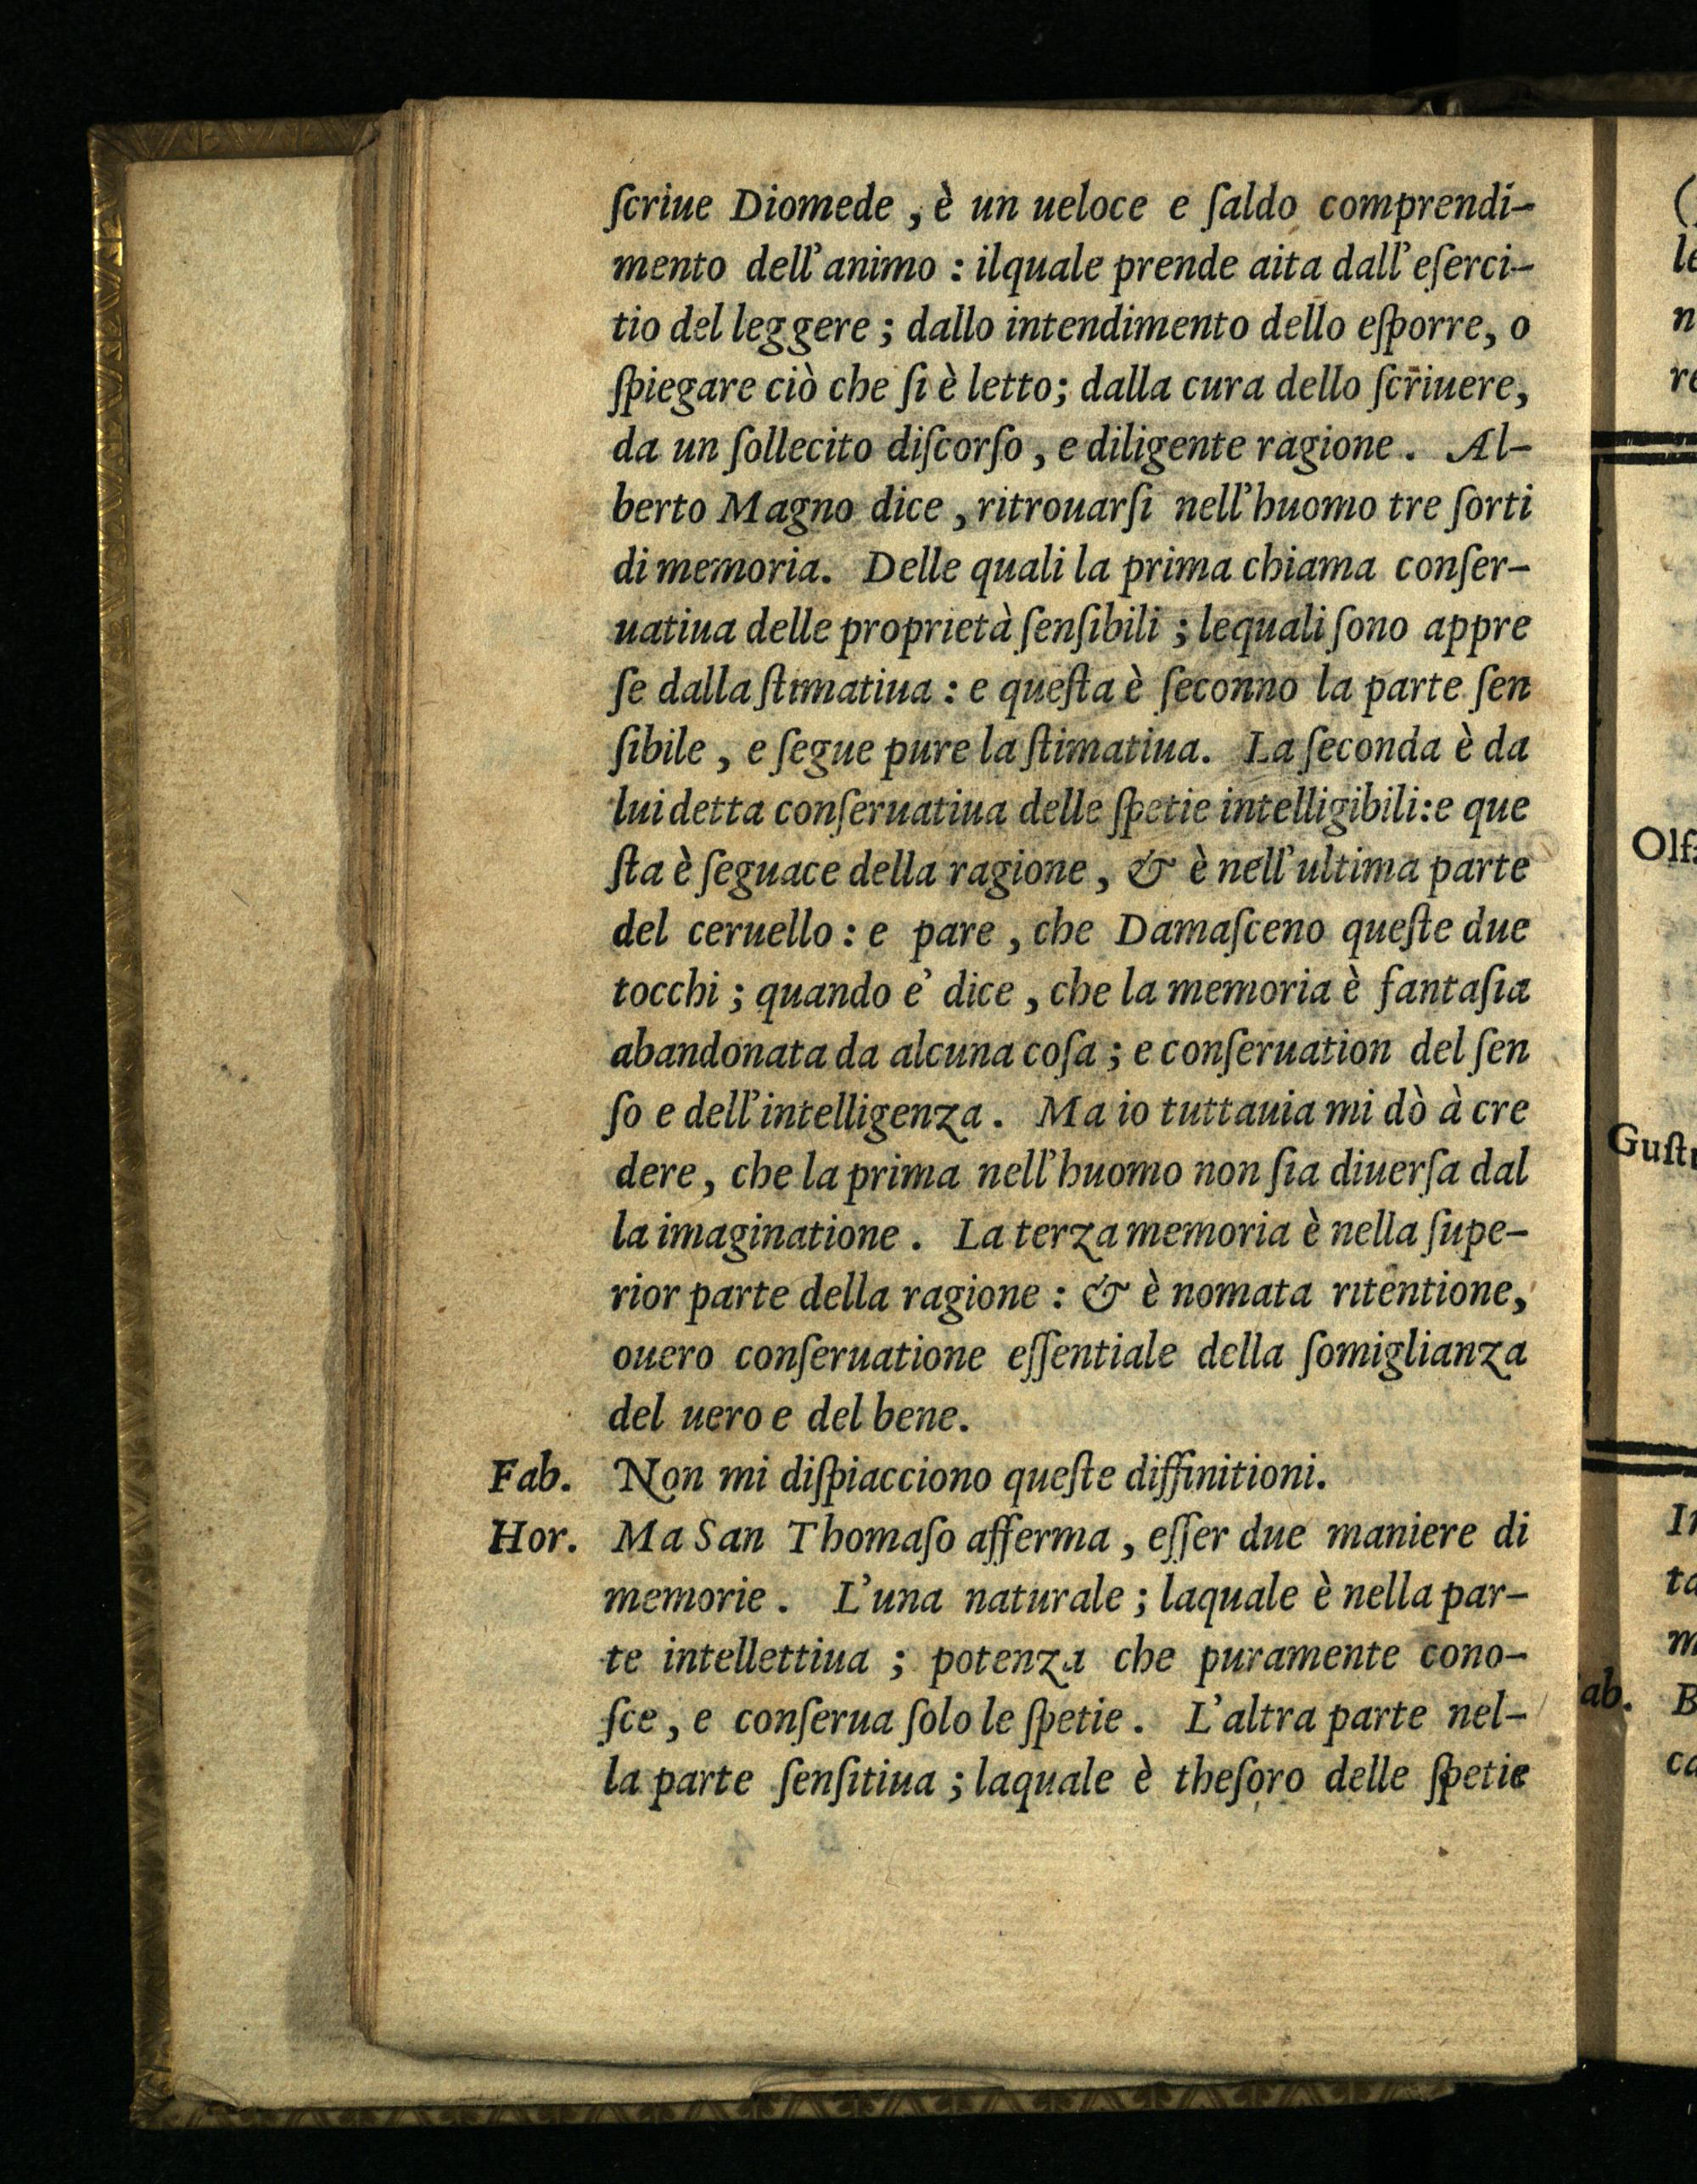 ſcriue Diomede, è un ueloce e ſaldo comprendi-
mento dell'animo: ilquale prende aita dall'eſerci-
tio del leggere; dallo intendimento dello eſporre, o
ſpiegare ciò che ſi è letto; dalla cura dello ſcriuere,
da un ſollecito diſcorſo, e diligente ragione. Al-
berto Magno dice, ritrouarſi nell'huomo tre ſorti
di memoria. Delle quali la prima chiama conſer-
uatiua delle proprietà ſenſibili; lequali ſono appre
ſe dalla ſtimatiua: e queſta è ſeconno la parte ſen
ſibile, e ſegue pure la ſtimatiua. La ſeconda è da
lui detta conſeruatiua delle ſpetie intelligibili: e que
ſta è ſeguace della ragione, & è nell'ultima parte
del ceruello: e pare, che Damaſceno queſte due
tocchi; quando e' dice, che la memoria è fantaſia
abandonata da alcuna coſa; e conſeruation del ſen
ſo e dell'intelligenza. Ma io tuttauia mi dò à cre
dere, che la prima nell'huomo non ſia diuerſa dal
la imaginatione. La terza memoria è nella ſupe-
rior parte della ragione: & è nomata ritentione,
ouero conſeruatione eſſentiale della ſomiglianza
del uero e del bene.
Fab. Non mi diſpiacciono queſte diffinitioni.
Hor. Ma San Thomaſo afferma, eſſer due maniere di
memorie. L'una naturale; laquale è nella par-
te intellettiua; potenza che puramente cono-
ſce, e conſerua ſolo le ſpetie. L'altra parte nel-
la parte ſenſitiua; laquale è theſoro delle ſpetie